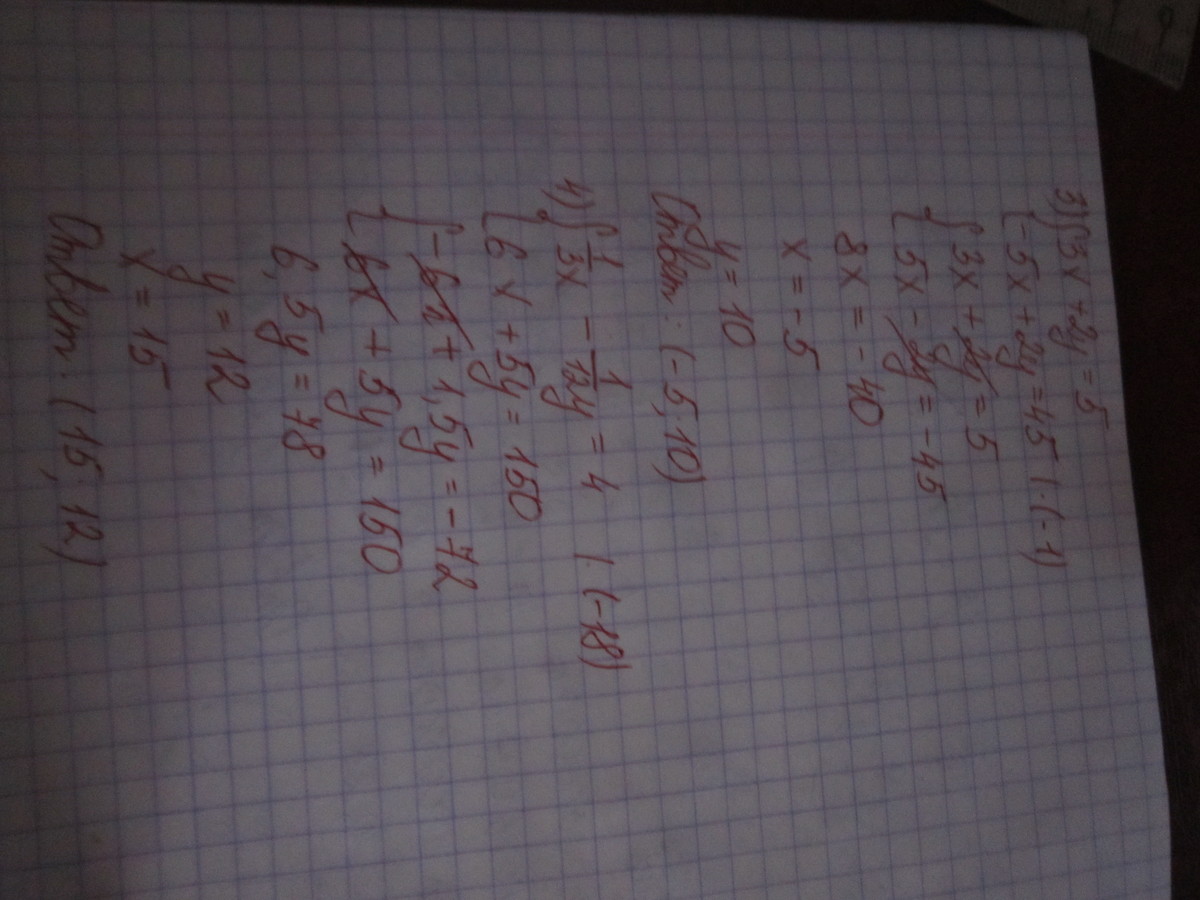 3) { 3x + 2y = 5
{ -5x + 2y = 45 | · (-1)
{ 3x + 2y = 5
{ 5x - 2y = -45
8x = -40
x = -5
y = 10
Ответ: (-5; 10)
4) { 1/3x - 1/12y = 4 | · (-18)
{ 6x + 5y = 150
{ -6x + 1,5y = -72
{ 6x + 5y = 150
6,5y = 78
y = 12
x = 15
Ответ: (15; 12)